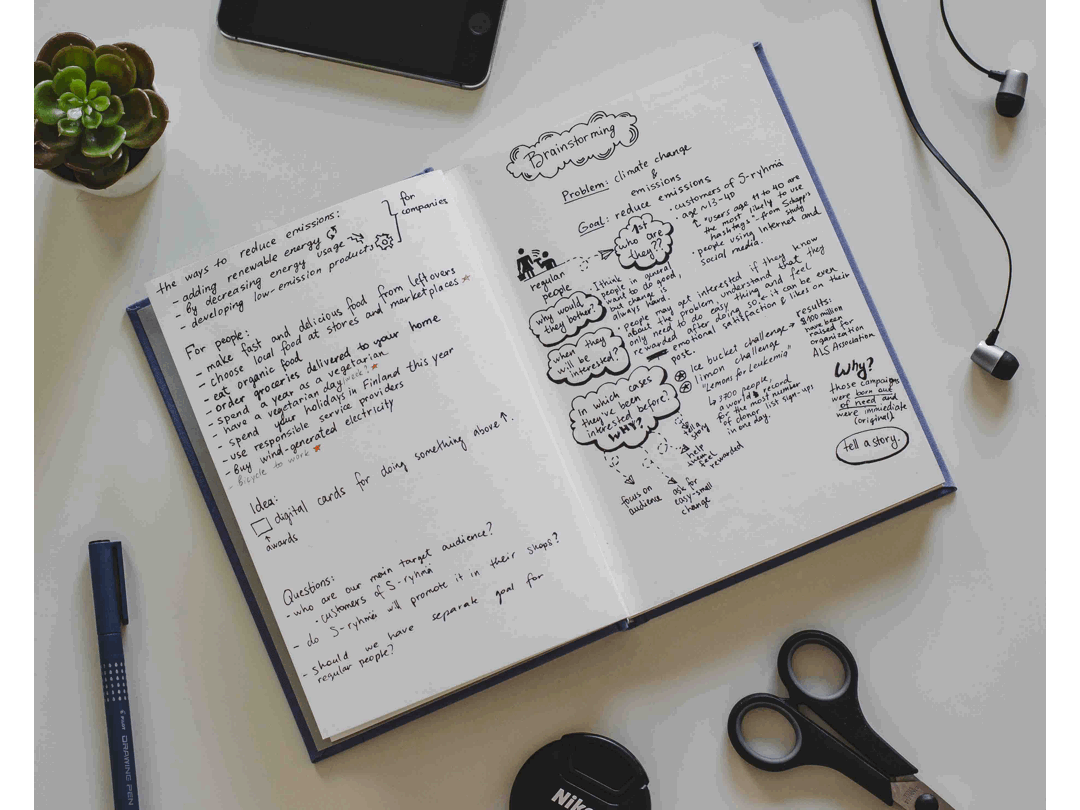 the ways to reduce emissions:
- adding renewable energy
- by decreasing energy usage
- developing low-emission products
for
companies
For people:
- make fast and delicious food from leftovers
- choose local food at stores and marketplaces
- eat organic food
- order groceries delivered to your home
- spend a year as a vegetarian
- have a vegetarian day
- spend your holidays in Finland this year
- use responsible service providers
- Buy wind-generated electricity
- Bicycle to work
Idea:
digital cards for doing something above ↑.
↑
awards
Questions:
- who are our main target audience?
· customers of S-ryhmä
- do S-ryhmä will promote it in their shops?
- should we have separate goal for
regular people?
Brainstorming
Problem: climate change
&
emissions
Goal: reduce emissions
regular
people
1st
who are
they??
· customers of S-ryhmä
· age ~13-40
↑ "users age 19 to 40 are
the most likely to use
hashtags" - from
study
· people using Internet and
social media.
why would
they bother?
· I think
people in general
want to do good,
but change is
always hard.
when they
will be
interested?
· people may get interested if they know
about the problem, understand that they
only need to do easy thing and feel
rewarded after doing so
it can be even
emotional satisfaction & likes on their
post.
In which cases
they've been
interested before?
WHY?
Ice bucket challenge →
results:
$100 million
have been
raised for
organization
ALS Association
limon challenge
"Lemons for Leukemia"
↳ 3700 people,
a world record
for the most number
of donor list sign-ups
in one day.
Why?
those campaigns
were born out
of need and
were immediate
(original)
tell a story.
tell a
story
help
them
feel
rewarded
focus on
audience
ask for
easy-small
change
PILOT
DRAWING PEN
Nikon